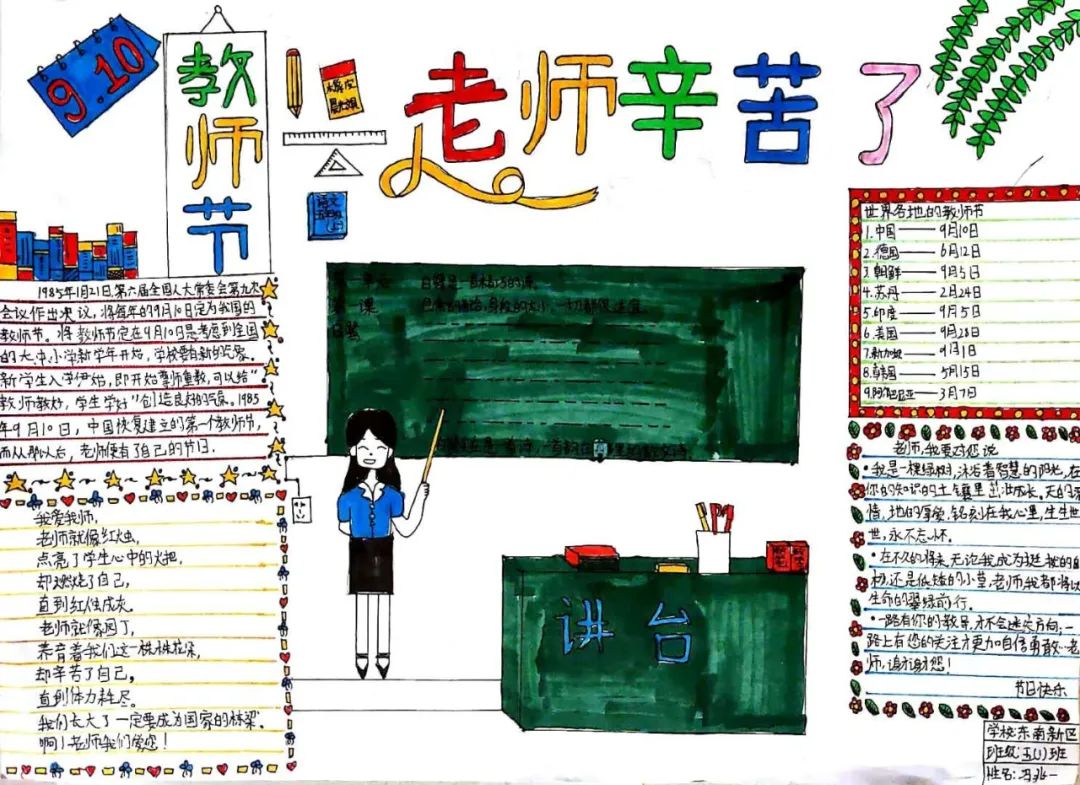 9.10
教师节
老师辛苦了
橡皮
语文
五年级
上
1985年1月21日,第六届全国人大常委会第九次
会议作出决议,将每年的9月10日定为我国的
教师节。将教师节定在9月10日是考虑到全国
的大、中、小学新学年开始,学校要有新的气象。
新学生入学伊始,即开始尊师重教,可以给“
教师教好,学生学好”创造良好的气氛。1985
年9月10日,中国恢复建立的第一个教师节,
而从那以后,老师便有了自己的节日.
我爱我师,
老师就像红烛,
点亮了学生心中的火把.
却燃烧了自己,
直到红烛成灰。
老师就像园丁,
养育着我们这一株株花朵,
却辛苦了自己。
直到体力耗尽。
我们长大了一定要成为国家的栋梁.
啊!老师我们爱您!
第一单元
第一课
白鹭
白鹭是一首精巧的诗。
色素的配合,身段的大小,一切都很适宜。
讲台
世界各地的教师节
1.中国——9月10日
2.德国——6月12日
3.朝鲜——9月5日
4.苏丹——2月24日
5.印度——9月5日
6.美国——9月28日
7.新加坡——9月1日
8.韩国——5月15日
9.阿尔巴尼亚——3月7日
老师,我要对您说
•我是一棵绿树,沐浴着智慧的阳光,在
你的知识的土壤里茁壮成长,天的
情,地的厚爱,铭刻在我心里,生生世
世,永不忘怀。
•在不久的将来,无论我成为挺拔的
材,还是低矮的小草,老师我都将以
生命的翠绿前行。
•一路有你的教导,才不会迷失方向;一
路上有您的关注才更加自信勇敢·老
师,谢谢您!
节日快乐
学校:东南新区
班级:五(1)班
姓名:冯